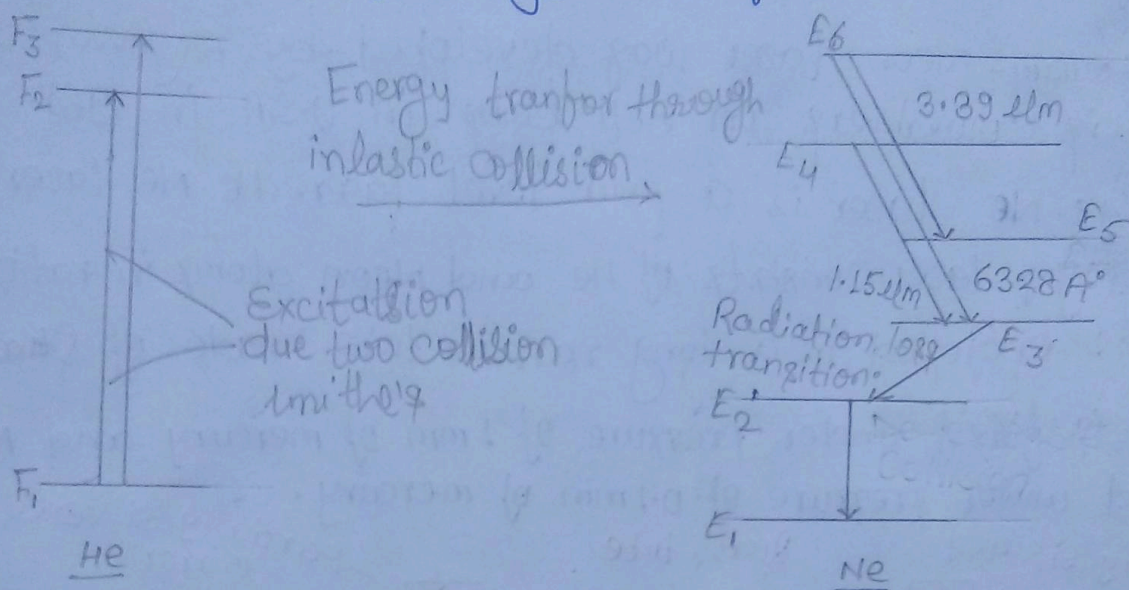 F3
F2
Energy tranfor through
inlastic collision
Excitatsion
due two collision
F1
He
E6
3.39 μm
E4
E5
1.15μm
6328 A°
Radiation
tranzition.
E3
E2
E1
Ne